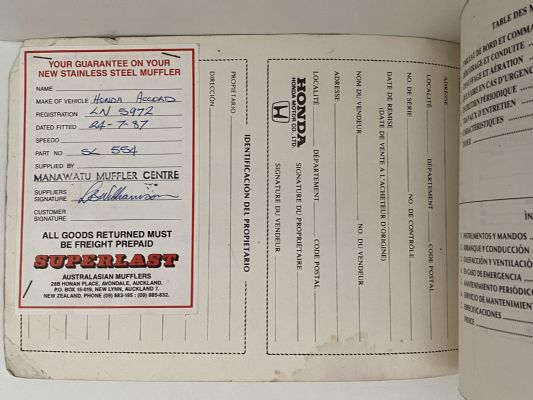 YOUR GUARANTEE ON YOUR
NEW STAINLESS STEEL MUFFLER
NAME
MAKE OF VEHICLE Honda Accord
REGISTRATION LN 5972
DATE FITTED 24-7-87
SPEEDO
PART NO SL 554
SUPPLIED BY
MANAWATU MUFFLER CENTRE
SUPPLIERS
SIGNATURE
CUSTOMER
SIGNATURE
ALL GOODS RETURNED MUST
BE FREIGHT PREPAID
SUPERLAST
AUSTRALASIAN MUFFLERS
28B HONAN PLACE, AVONDALE, AUCKLAND.
P.O. BOX 15-019, NEW LYNN, AUCKLAND 7.
NEW ZEALAND, PHONE (09) 883-195 : (09) 885-632.
IDENTIFICACION DEL PROPIETARIO
PROPIETARIO
DIRECCIÓN
ADRESSE
LOCALITÉ DÉPARTEMENT CODE POSTAL
NO. DE SÉRIE NO. DE CONTRÔLE
DATE DE REMISE
(DATE DE VENTE À L'ACHETEUR D'ORIGINE)
NOM DU VENDEUR NO. DU VENDEUR
ADRESSE
LOCALITÉ DÉPARTEMENT CODE POSTAL
SIGNATURE DU PROPRIÉTAIRE
SIGNATURE DU VENDEUR
HONDA
HONDA MOTOR CO., LTD.
TABLE DES
BORD ET COMMA
CONDUITE
AÉRATION
EN CAS D'URGENC
PÉRIODIQUE
D'ENTRETIEN
INDEX
ÍN
1. INSTRUMENTOS Y MANDOS
2. ARRANQUE Y CONDUCCIÓN
3. CALEFACCIÓN Y VENTILACIÓ
4. EN CASO DE EMERGENCIA
5. MANTENIMIENTO PERIÓDICO
6. SERVICIO DE MANTENIMIENT
7. ESPECIFICACIONES
ÍNDICE